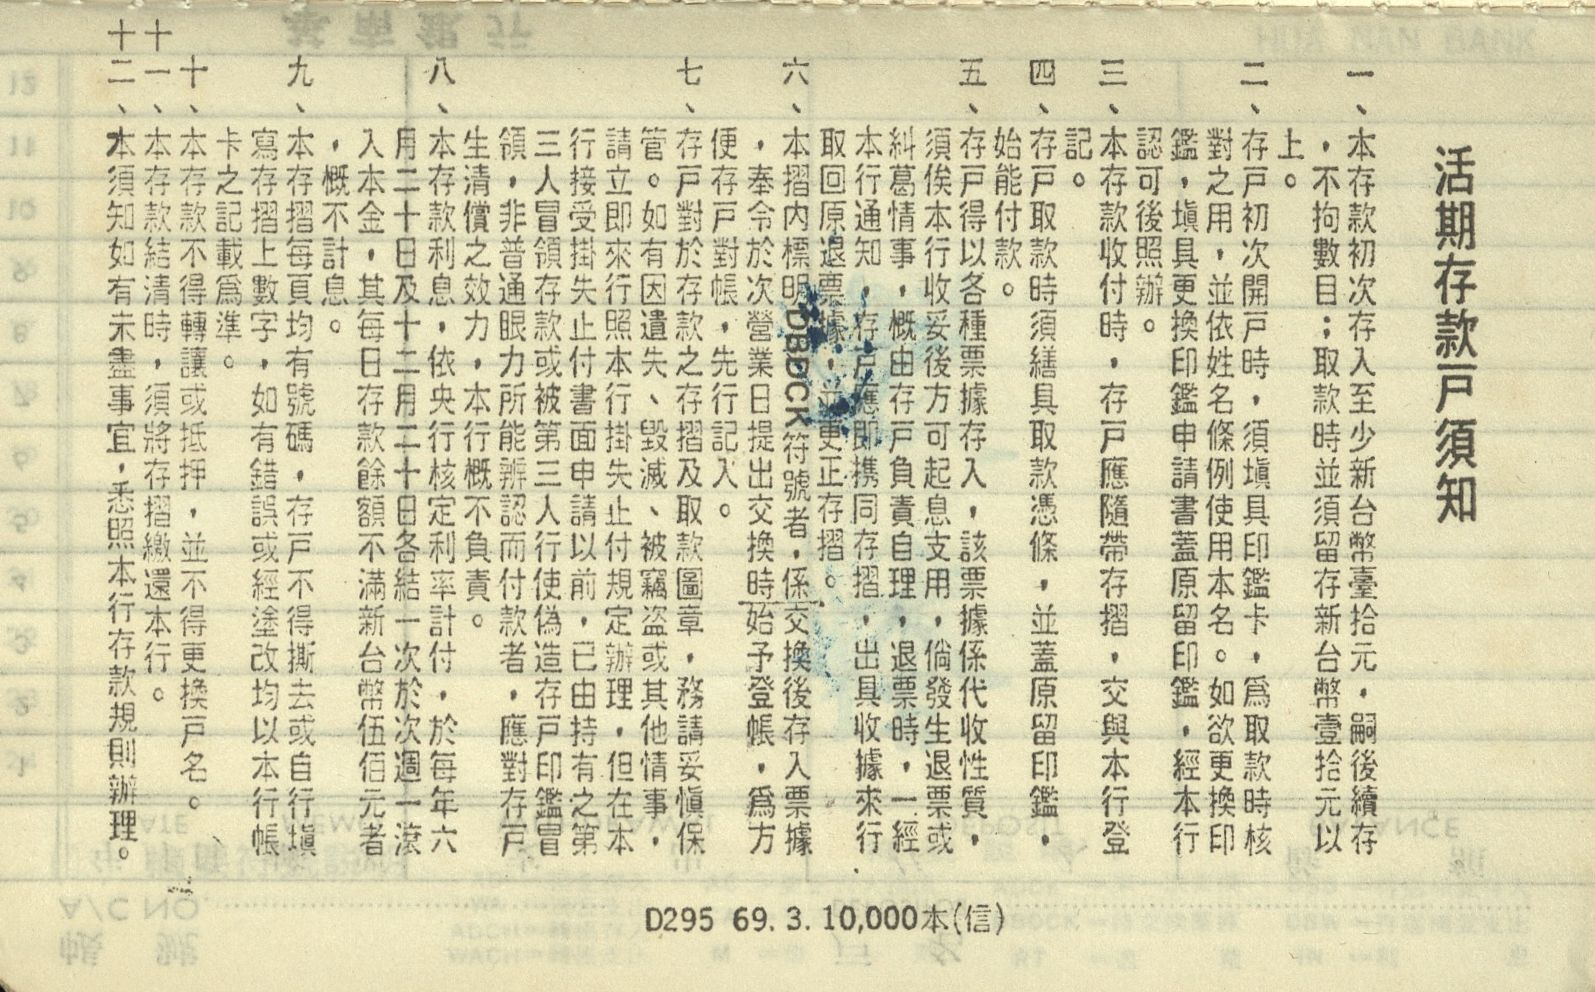 活期存款戶須知
一、本存款初次存入至少新台幣臺拾元，嗣後續存
，不拘數目；取款時並須留存新台幣壹拾元以
上。
二、存戶初次開戶時，須塡具印鑑卡，爲取款時核
對之用，並依姓名條例使用本名。如欲更換印
鑑，塡具更換印鑑申請書蓋原留印鑑，經本行
認可後照辦。
三、本存款收付時，存戶應隨帶存摺，交與本行登
記。
四、存戶取款時須繕具取款憑條，並蓋原留印鑑，
始能付款。
五、存戶得以各種票據存入，該票據係代收性質，
須俟本行收妥後方可起息支用，倘發生退票或
糾葛情事，慨由存戶負責自理，退票時，一經
本行通知，存戶應即携同存摺，出具收據來行
取回原退票據，並更正存摺。
六、本摺內標明DBDCK符號者，係交換後存入票據
，奉令於次營業日提出交換時始予登帳，爲方
便存戶對帳，先行記入。
七、存戶對於存款之存摺及取款圖章，務請妥愼保
管。如有因遺失、毀滅、被竊盜或其他情事，
請立即來行照本行掛失止付規定辦理，但在本
行接受掛失止付書面申請以前，已由持有之第
三人冒領存款或被第三人行使偽造存戶印鑑冒
領，非普通眼力所能辨認而付款者，應對存戶
生清償之效力，本行概不負責。
八、本存款利息，依央行核定利率計付，於每年六
月二十日及十二月二十日各結一次於次週一滾
入本金，其每日存款餘額不滿新台幣伍佰元者
，慨不計息。
九、本存摺每頁均有號碼，存戶不得撕去或自行塡
寫存摺上數字，如有錯誤或經塗改均以本行帳
卡之記載爲準。
十、本存款不得轉讓或抵押，並不得更換戶名。
十一、本存款結清時，須將存摺繳還本行。
十二、本須知如有未盡事宜，悉照本行存款規則辦理。
D295 69.3.10,000本(信)
HUA NAN BANK
A/C NO.
帳號